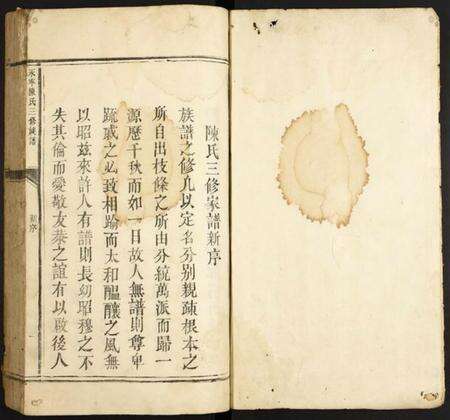 陳氏三修家譜新序
族譜之修凡以定名分別親疎根本之
所自出枝條之所由分統萬派而歸一
源歷千秋而如一日故人無譜則尊卑
疏戚之必致相踰而太和醞釀之風無
以昭茲來許人有譜則長幼昭穆之不
失其倫而愛敬友恭之誼有以啟後人
陳氏三修族譜
新序